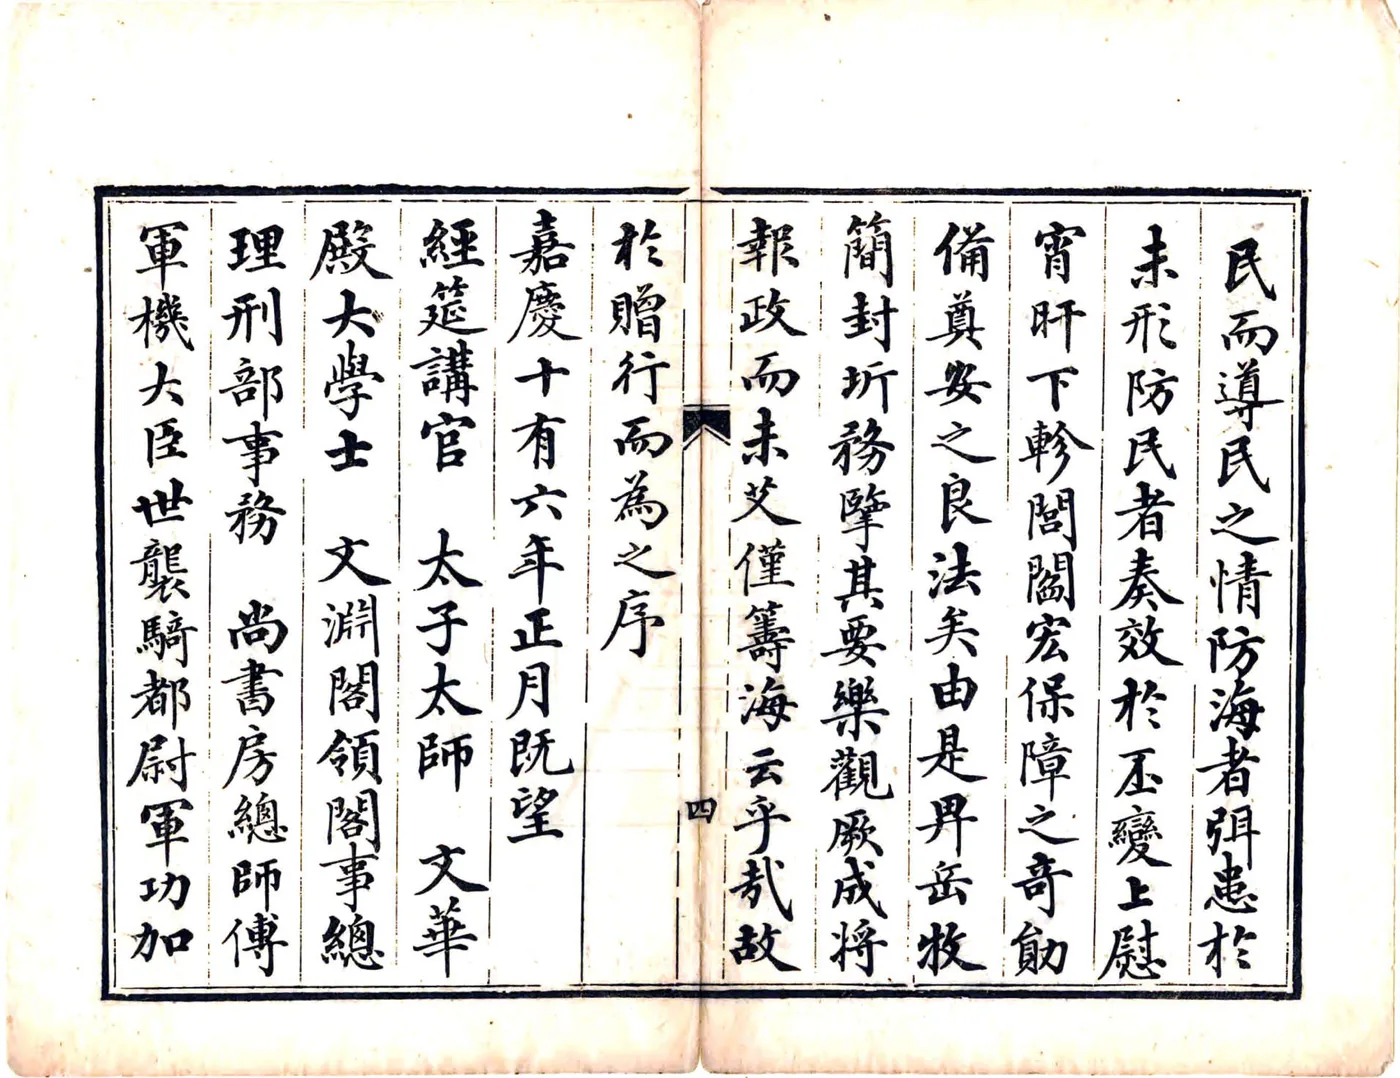 民而導民之情防海者弭患於
未形防民者奏效於丕變上慰
宵旰下軫閭閻宏保障之奇勛
備奠安之良法矣由是畀岳牧
簡封圻務擥其要樂觀厥成將
報政而未艾僅籌海云乎哉故
四
於贈行而為之序
嘉慶十有六年正月既望
經筵講官 太子太師 文華
殿大學士 文淵閣領閣事總
理刑部事務 尚書房總師傅
軍機大臣世襲騎都尉軍功加